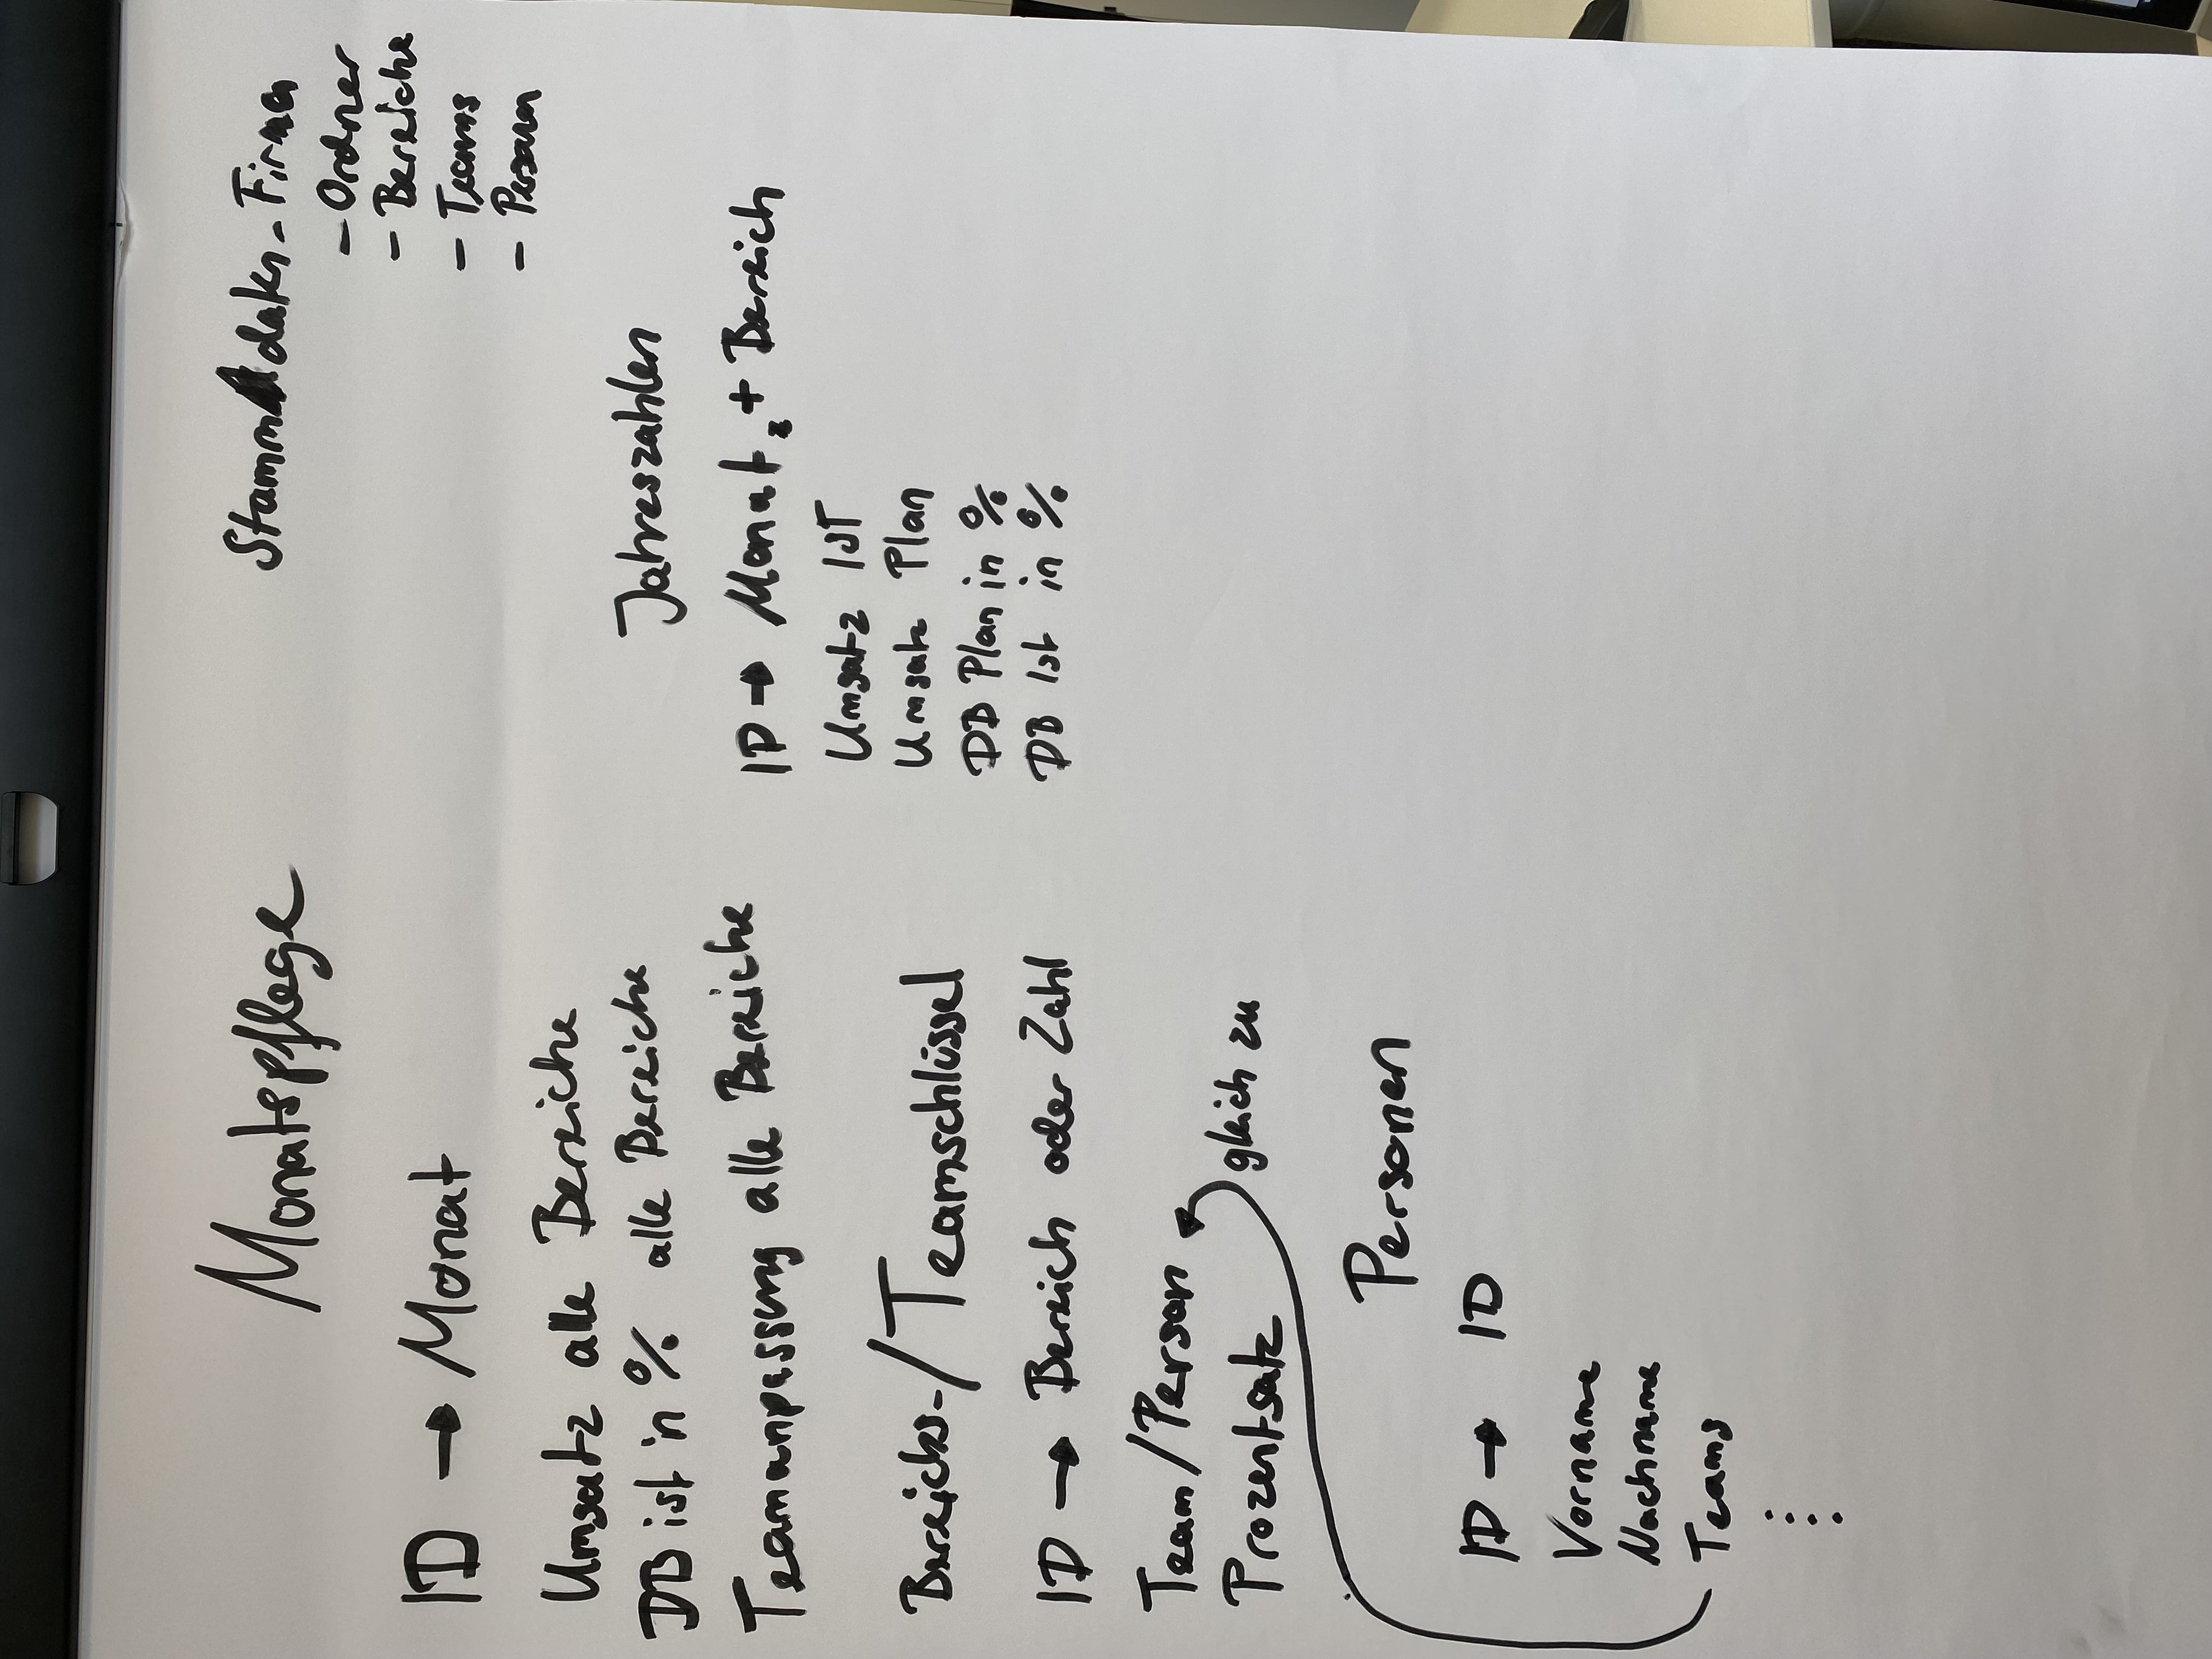 Monatspflege
ID → Monat
Umsatz alle Bereiche
DB ist in % alle Bereiche
Teamanpassung alle Bereiche
Bereichs-/Teamschlüssel
ID → Bereich oder Zahl
Team/Person
Prozentsatz
gleich zu
Personen
ID → ID
Vorname
Nachname
Teams
Stammdaten - Firma
- Ordner
- Bereiche
- Teams
- Personen
Jahreszahlen
ID → Monat + Bereich
Umsatz IST
Umsatz Plan
DB Plan in %
DB Ist in %